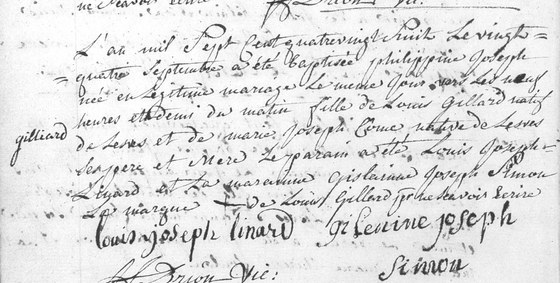 ne sçavoir écrire
L'an mil sept cent quatre vingt huit le vingt=
=quatre septembre a été baptisée philippine joseph
née en légitime mariage le meme jour vers les neuf
heures et demi du matin fille de Louis Gillard natif
gilliard
de Lesves et de marie joseph Corne native de Lesves
ses pere et mere Le parain a été Louis joseph
Linard et la maremine Gislainne joseph Simon
Le marque de Louis Gillard pr ne scavoir écrire
louis joseph linard gilenine joseph
simon
Drion Vic: